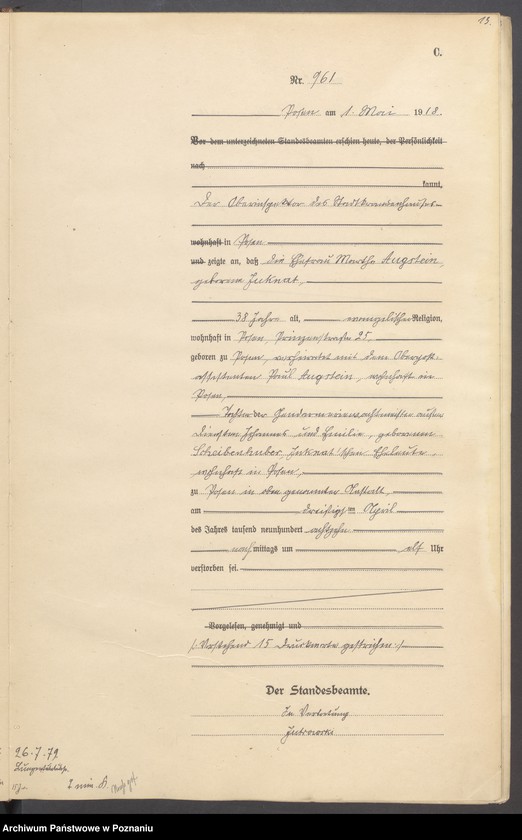 13.
C.
Nr. 961
Posen am 1. Mai 1918.
Vor dem unterzeichneten Standesbeamten erschien heute, der Persönlichkeit
nach
kannt,
Der Oberinspektor des Stadtkrankenhauses
wohnhaft in Posen
und zeigte an, daß die Ehefrau Martha Augstein,
geborene Juknat,
38 Jahre alt, evangelischer Religion,
wohnhaft in Posen, Prinzenstraße 25,
geboren zu Posen, verheiratet mit dem Oberpost-
assistenten Paul Augstein, wohnhaft in
Posen,
Tochter der Gendarmeriewachtmeister außer
Diensten Johannes und Emilie, geborenen
Scheibenhuber, Juknat'schen Eheleute,
wohnhaft in Posen,
zu Posen in oben genannter Anstalt,
am dreißigsten April
des Jahres tausend neunhundert achtzehn
nachmittags um elf Uhr
verstorben sei.
Vorgelesen, genehmigt und
(Vorstehend 15 Druckworte gestrichen.)
Der Standesbeamte.
In Vertretung
26.7.72
Archiwum Państwowe w Poznaniu